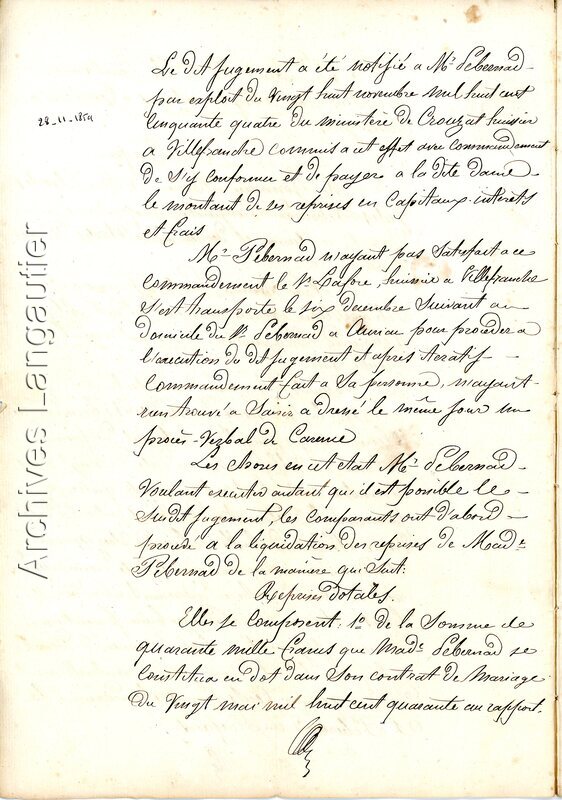 Le dit jugement a été notifié a Mr. Pebernad
par exploit du vingt huit novembre mil huit cent
28_11_1854
cinquante quatre du ministère de Crouzat huissier
a Villefranche commis a cet effet avec commandement
de s'y conformer et de payer a la dite dame
le montant de ses reprises en Capitaux, intérêts
et frais
Mr. Pebernad n'ayant pas satisfait a ce
commandement le Sr. Lafore, huissier a Villefranche
s'est transporté le six décembre suivant au
domicile du Sr. Pebernad a Auriac pour procéder a
l'exécution du dit jugement et après itératif
commandement fait a sa personne, n'ayant
rien trouvé a saisir a dressé le même jour un
procès-verbal de Carence
Les choses en cet état Mr. Pebernad
voulant exécuter autant qu'il est possible le
susdit jugement, les comparants ont d'abord
procédé a la liquidation des reprises de Made.
Pebernad de la manière qui suit:
Reprises dotales.
Elles se composent: 1o. de la somme de
quarante mille francs que Made. Pebernad se
constitua en dot dans son contrat de Mariage
du vingt mai mil huit cent quarante au rapport
Archives Langautier